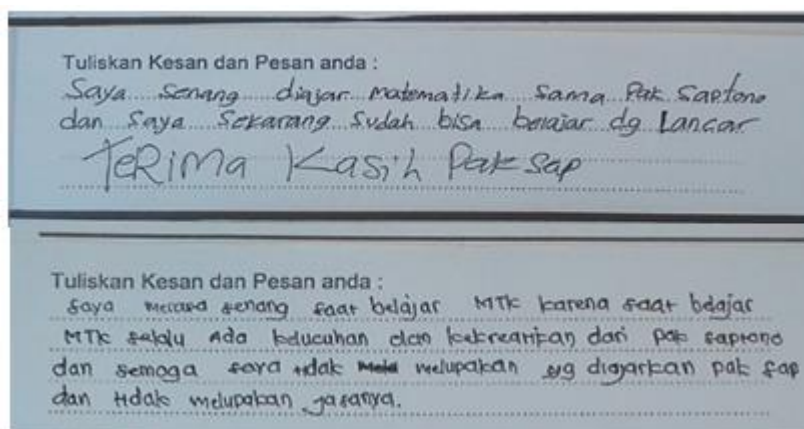 Tuliskan Kesan dan Pesan anda :
Saya senang diajar matematika sama Pak Saptono
dan Saya Sekarang Sudah bisa belajar dg Lancar
TeRiMa Kasih Pak Sap
Tuliskan Kesan dan Pesan anda :
saya merasa senang saat belajar MTK karena saat belajar
MTK selalu Ada kelucuhan dan kekreatifan dari pak saptono
dan semoga saya tidak melupakan yg diajarkan pak sap
dan tidak melupakan jasanya.